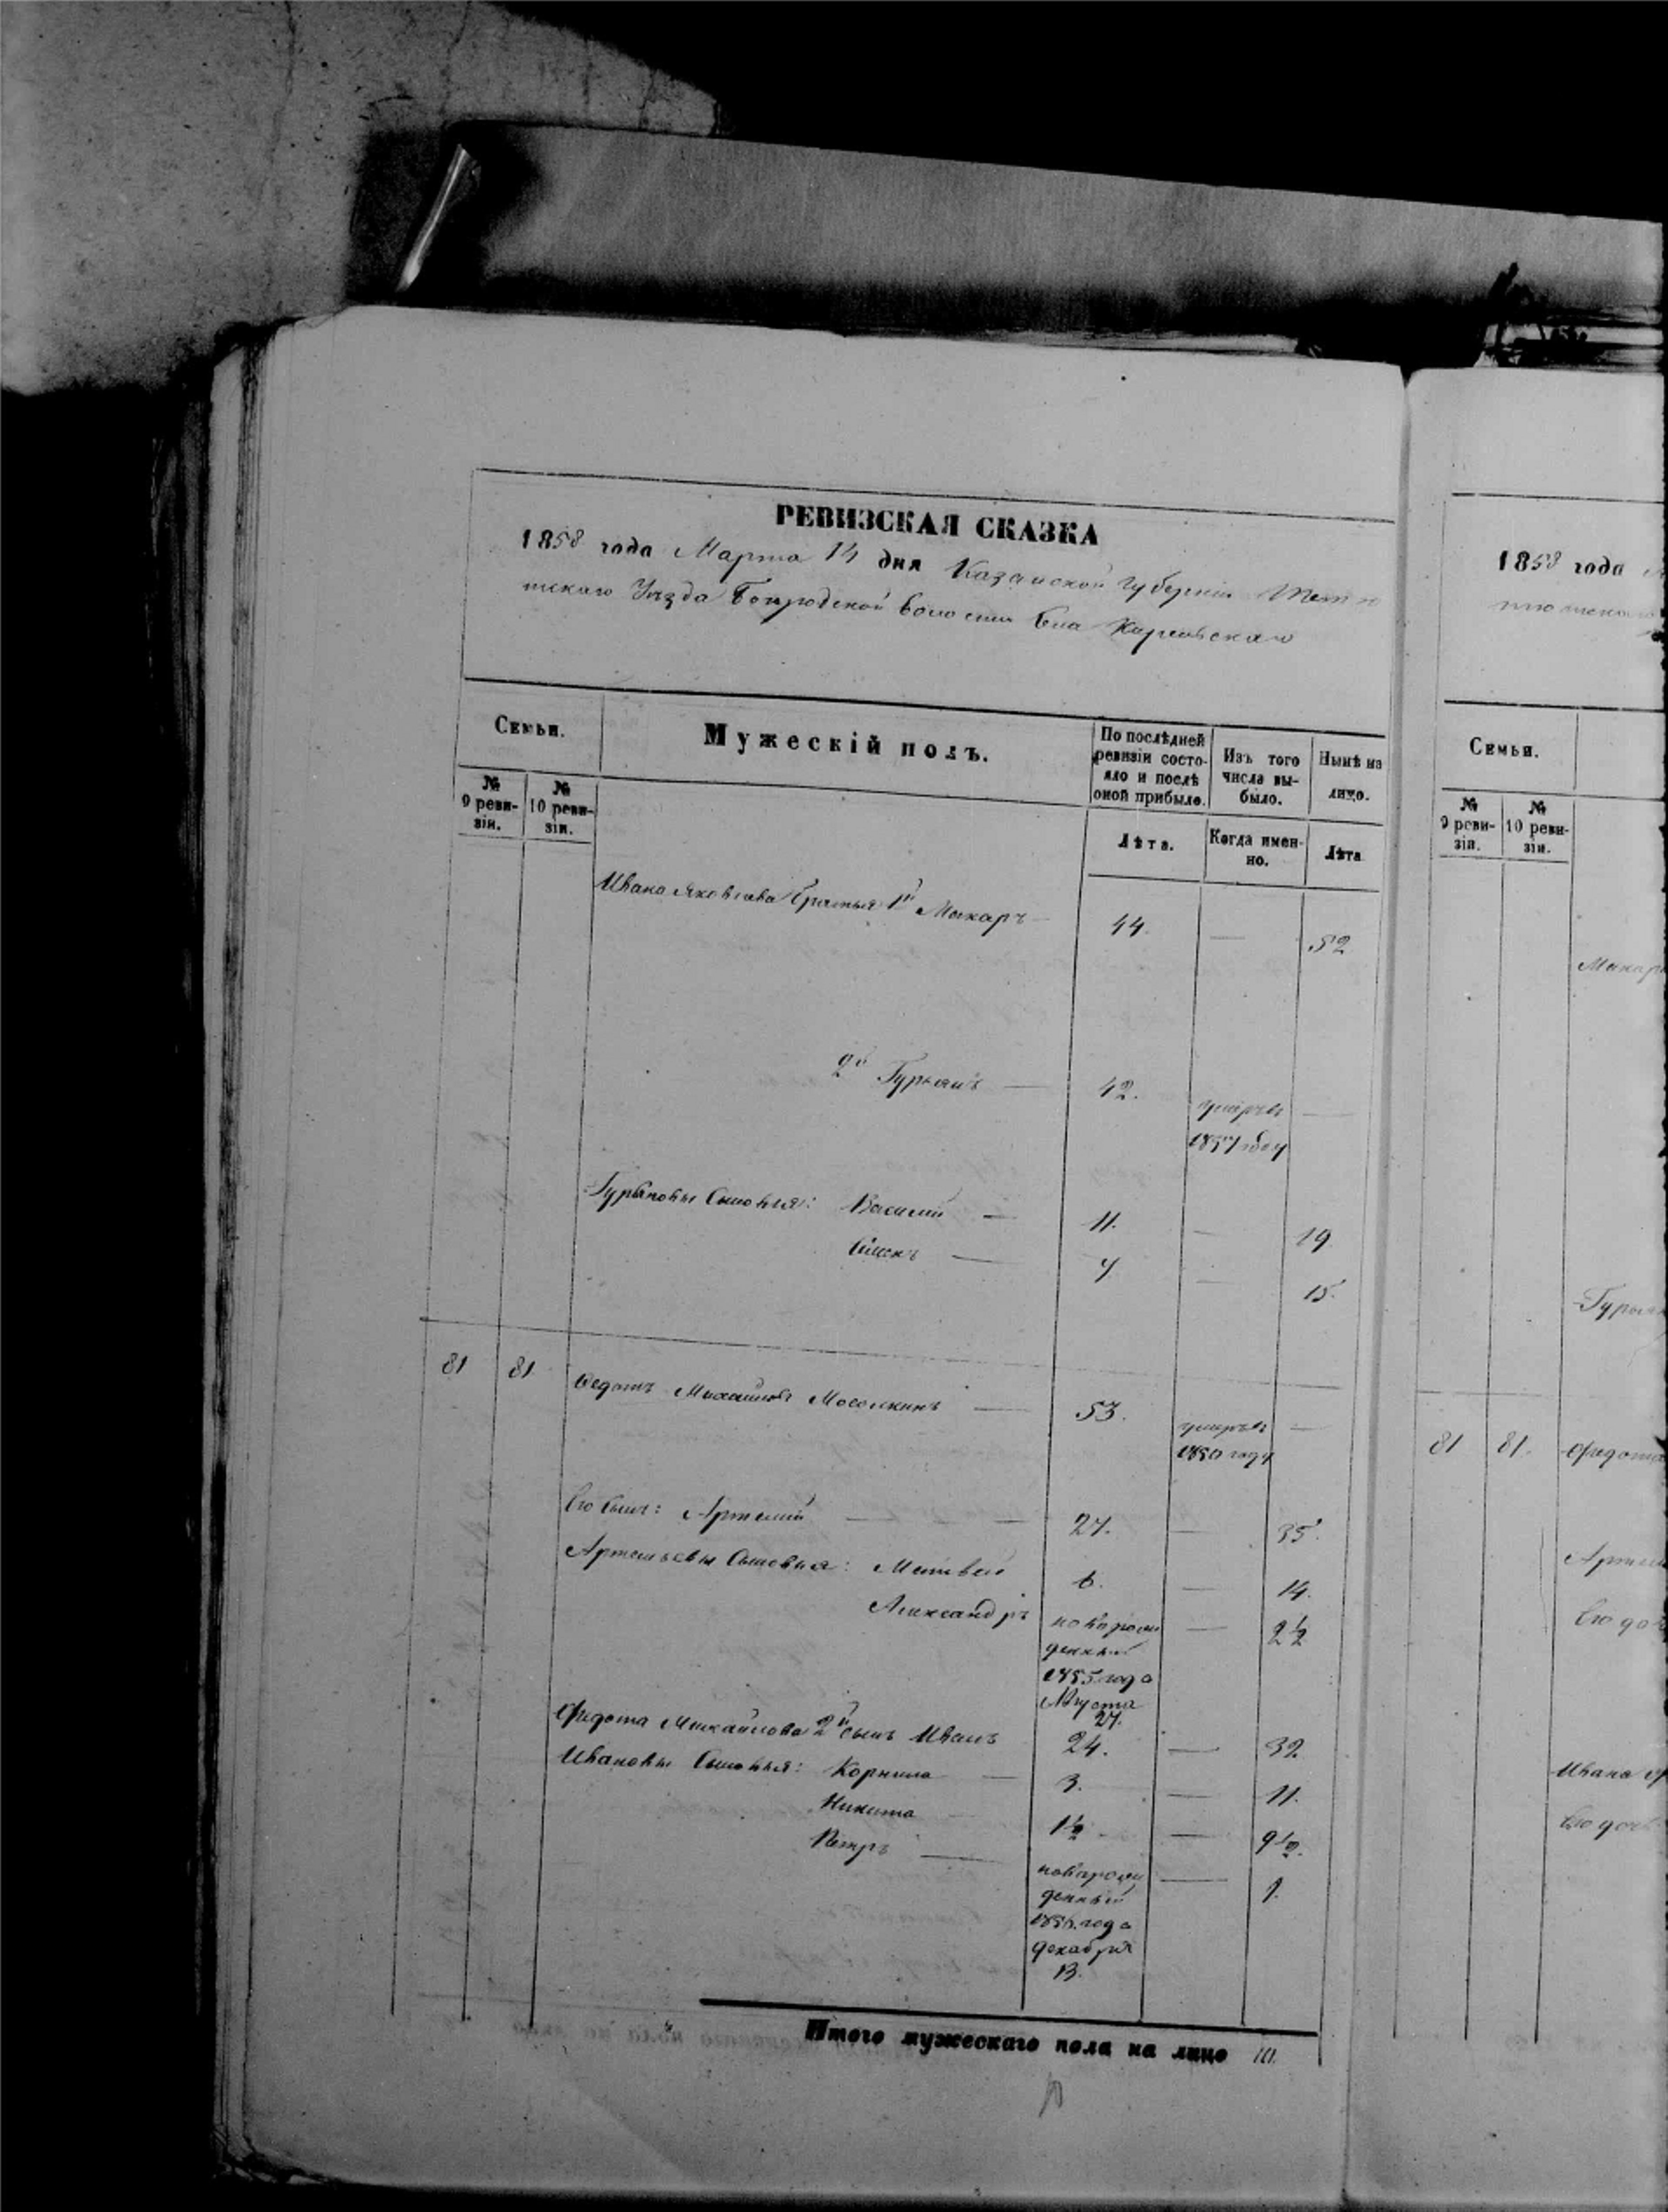 РЕВИЗСКАЯ СКАЗКА
1858 года Марта 14 дня Казанской Губерніи Тетю
шскаго Уѣзда Богородской волости
Семьи.
Мужескій полъ.
По послѣдней ревизіи состо-
яло и послѣ
оной прибыло.
Изъ того
числа вы-
было.
Нынѣ на
лицо.
№
9 реви-
зіи.
№
10 реви-
зіи.
Лѣта.
Когда имен-
но.
Лѣта
Ивана Яковлева братья 1й Макаръ — 44 — 52
2й Гурьянъ — 42. умеръ въ —
1857 году
Гурьяновы сыновья: Василий — 11. — 19
Симонъ — 7 — 15.
81 81. Федотъ Михайловъ Мосолкинъ — 53. умеръ въ —
1850 году
Его сынъ: Артемий — 27. — 35.
Артемьевы сыновья: Матвей 6. — 14.
Александръ новорож — 2½
денный
1855 года
Августа
27.
Федота Михайлова 2й сынъ Иванъ 24. — 32
Ивановы сыновья: Корнила — 3. — 11.
Никита — 1½ — 9½.
Петръ — новорож — 1.
денный
1856 года
декабря
13.
Итого мужескаго пола на лицо 10.
1858 года
Семьи.
№
9 реви-
зіи.
№
10 реви-
зіи.
Макар
Гурьян
81 81. Федота
Артем
Его доч
Ивана
Его доч